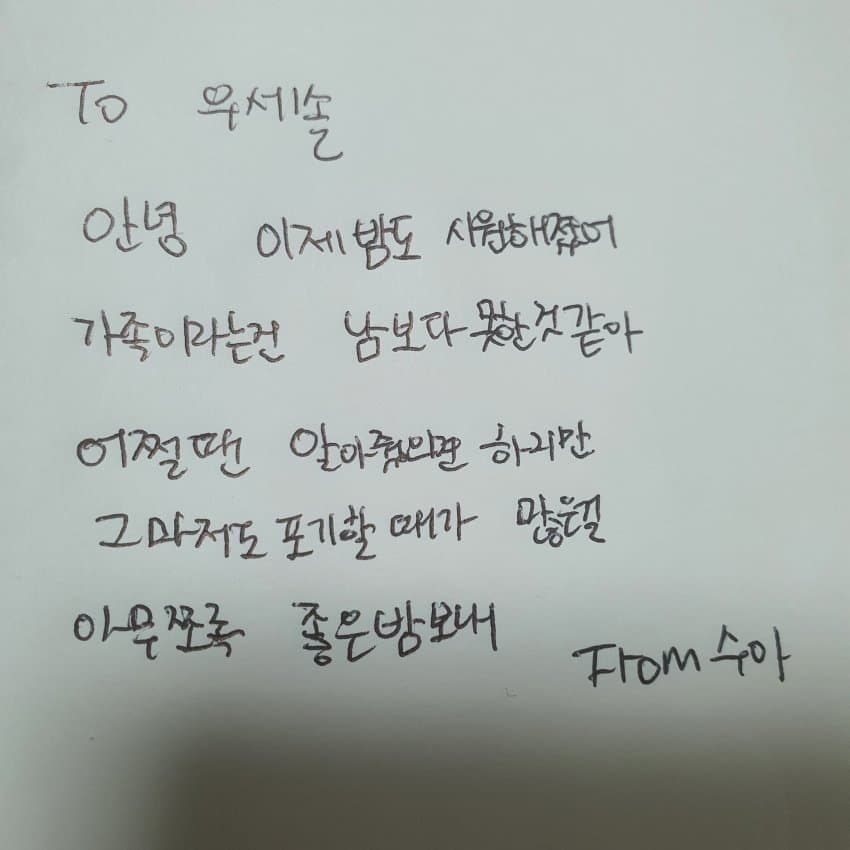 To 우세솔
안녕 이제 밤도 시원해졌어
가족이라는건 남보다 못한것같아
어쩔땐 알아줬으면 하지만
그마저도 포기할 때가 많은걸
아무쪼록 좋은밤보내
From 수아